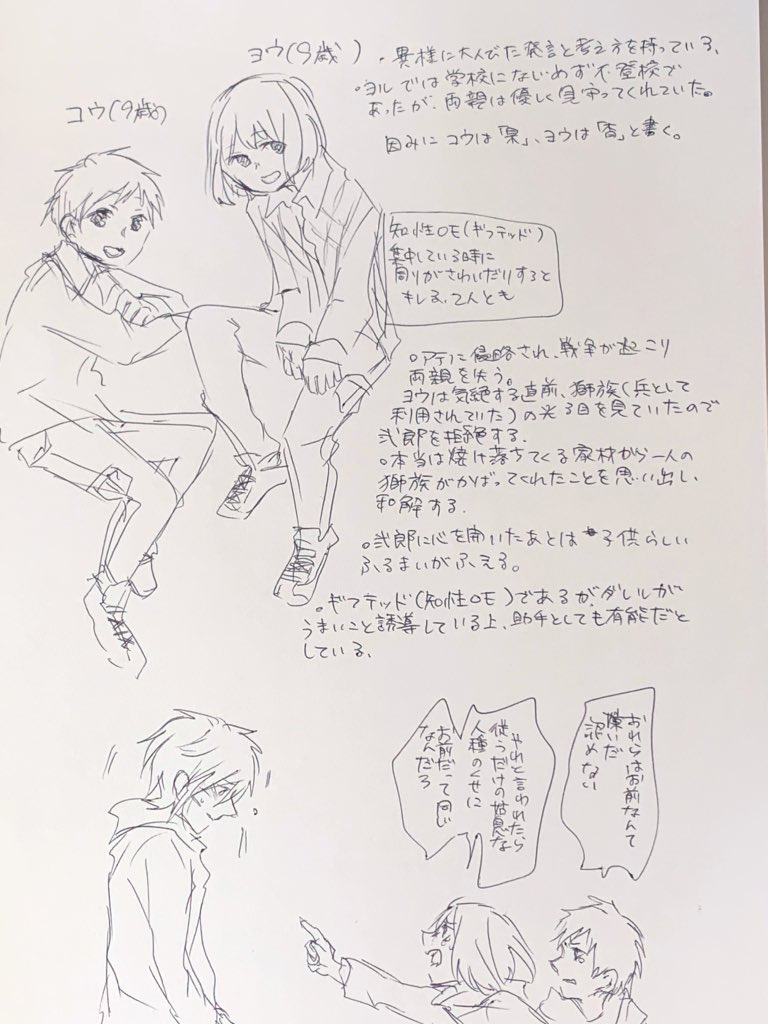 ヨウ(9歳)
・異様に大人びた発言と考え方を持っている、
・ヨルでは学校になじめず不登校で
あったが、両親は優しく見守ってくれていた。
因みにコウは「杲」、ヨウは「杳」と書く。
コウ(9歳)
知性OE(ギフテッド)
集中している時に
周りがさわいだりすると
キレる、2人とも
。アテに侵略され、戦争が起こり
両親を失う。
ヨウは気絶する直前、獅族(兵として
利用されていた)の光る目を見ていたので
弐郎を拒絶する.
。本当は焼け落ちてくる家材から一人の
獅族がかばってくれたことを思い出し、
和解する.
。弐郎に心を開いたあとは子供らしい
ふるまいがふえる。
。ギフテッド(知性OE)であるが、ダレルが
うまいこと誘導している上、助手としても有能だと
している、
おれらはお前なんて
嫌いだ
認めない
やれと言われたら
従うだけの姑息な
人種のくせに
お前だって同じ
なんだろ